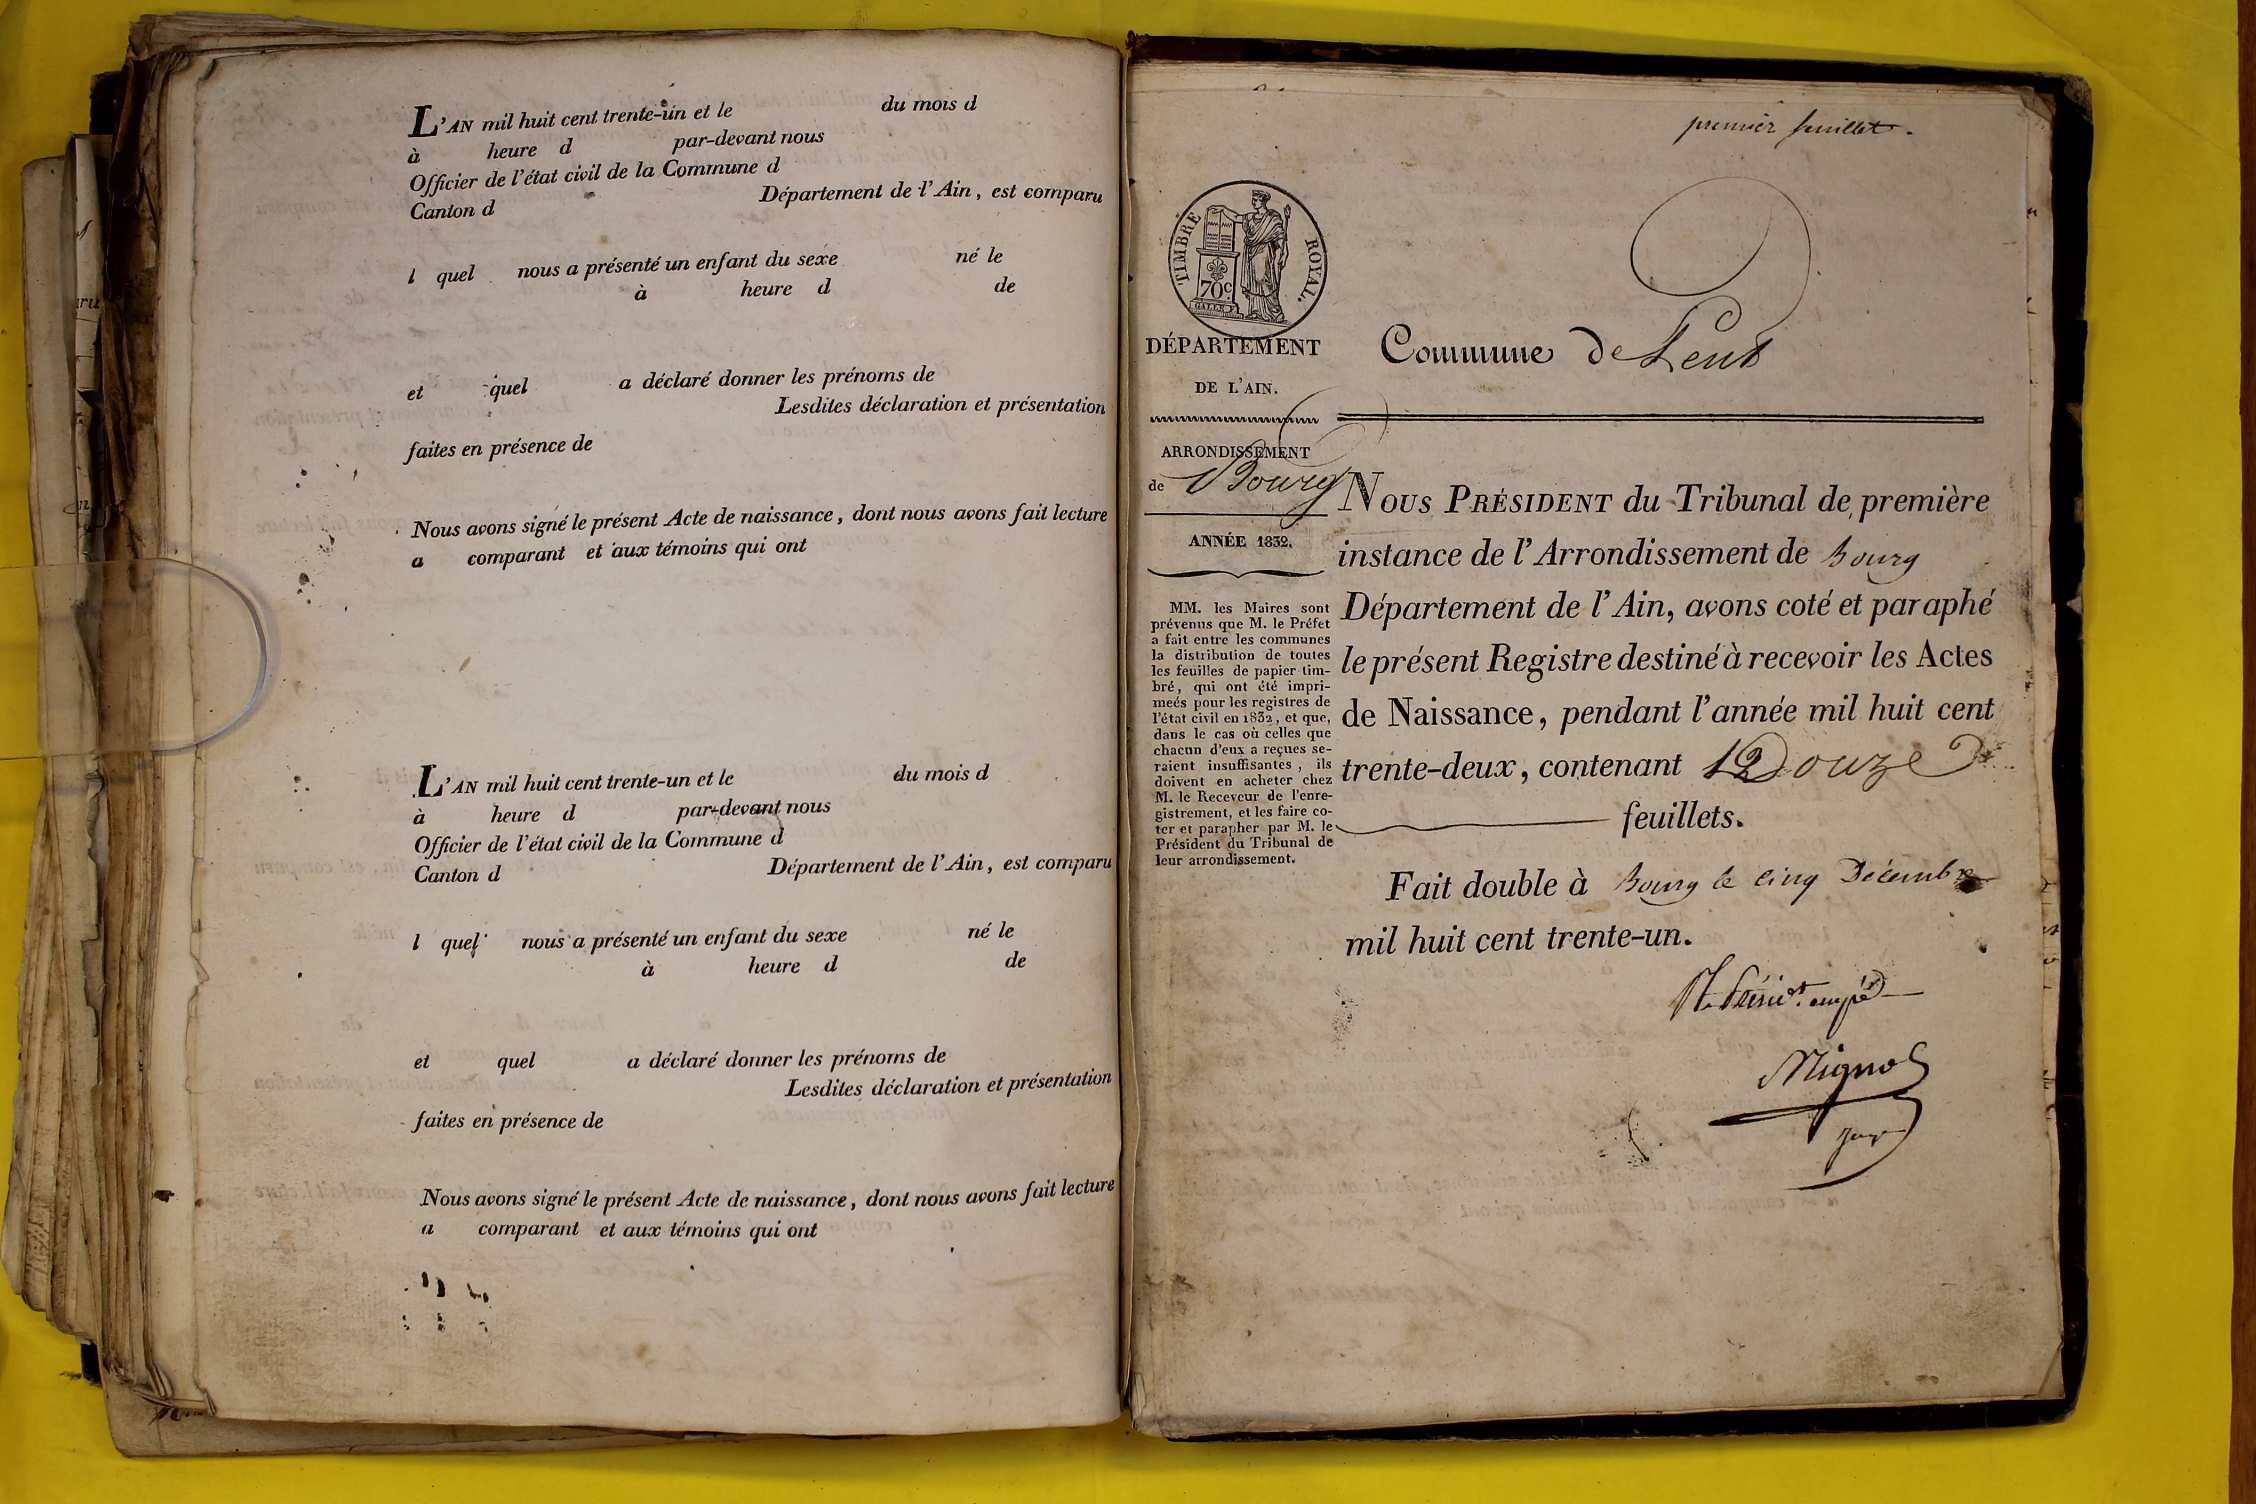 L'AN mil huit cent trente-un et le du mois d
à heure d par-devant nous
Officier de l'état civil de la Commune d
Canton d Département de l'Ain, est comparu
l quel nous a présenté un enfant du sexe né le
à heure d de
et quel a déclaré donner les prénoms de
Lesdites déclaration et présentation
faites en présence de
Nous avons signé le présent Acte de naissance, dont nous avons fait lecture
a comparant et aux témoins qui ont
L'AN mil huit cent trente-un et le du mois d
à heure d par-devant nous
Officier de l'état civil de la Commune d
Canton d Département de l'Ain, est comparu
l quel nous a présenté un enfant du sexe né le
à heure d de
et quel a déclaré donner les prénoms de
Lesdites déclaration et présentation
faites en présence de
Nous avons signé le présent Acte de naissance, dont nous avons fait lecture
a comparant et aux témoins qui ont
premier feuillet.
TIMBRE ROYAL.
70c.
DÉPARTEMENT
DE L'AIN.
ARRONDISSEMENT
de Bourg
ANNÉE 1832.
MM. les Maires sont
prévenus que M. le Préfet
a fait entre les communes
la distribution de toutes
les feuilles de papier tim-
bré, qui ont été impri-
meés pour les registres de
l'état civil en 1832, et que,
dans le cas où celles que
chacun d'eux a reçues se-
raient insuffisantes, ils
doivent en acheter chez
M. le Receveur de l'enre-
gistrement, et les faire co-
ter et parapher par M. le
Président du Tribunal de
leur arrondissement.
Commune de Lent
NOUS PRÉSIDENT du Tribunal de première
instance de l'Arrondissement de Bourg
Département de l'Ain, avons coté et paraphé
le présent Registre destiné à recevoir les Actes
de Naissance, pendant l'année mil huit cent
trente-deux, contenant 12 Douze
feuillets.
Fait double à Bourg le cinq Décembre
mil huit cent trente-un.
Mignot
juge